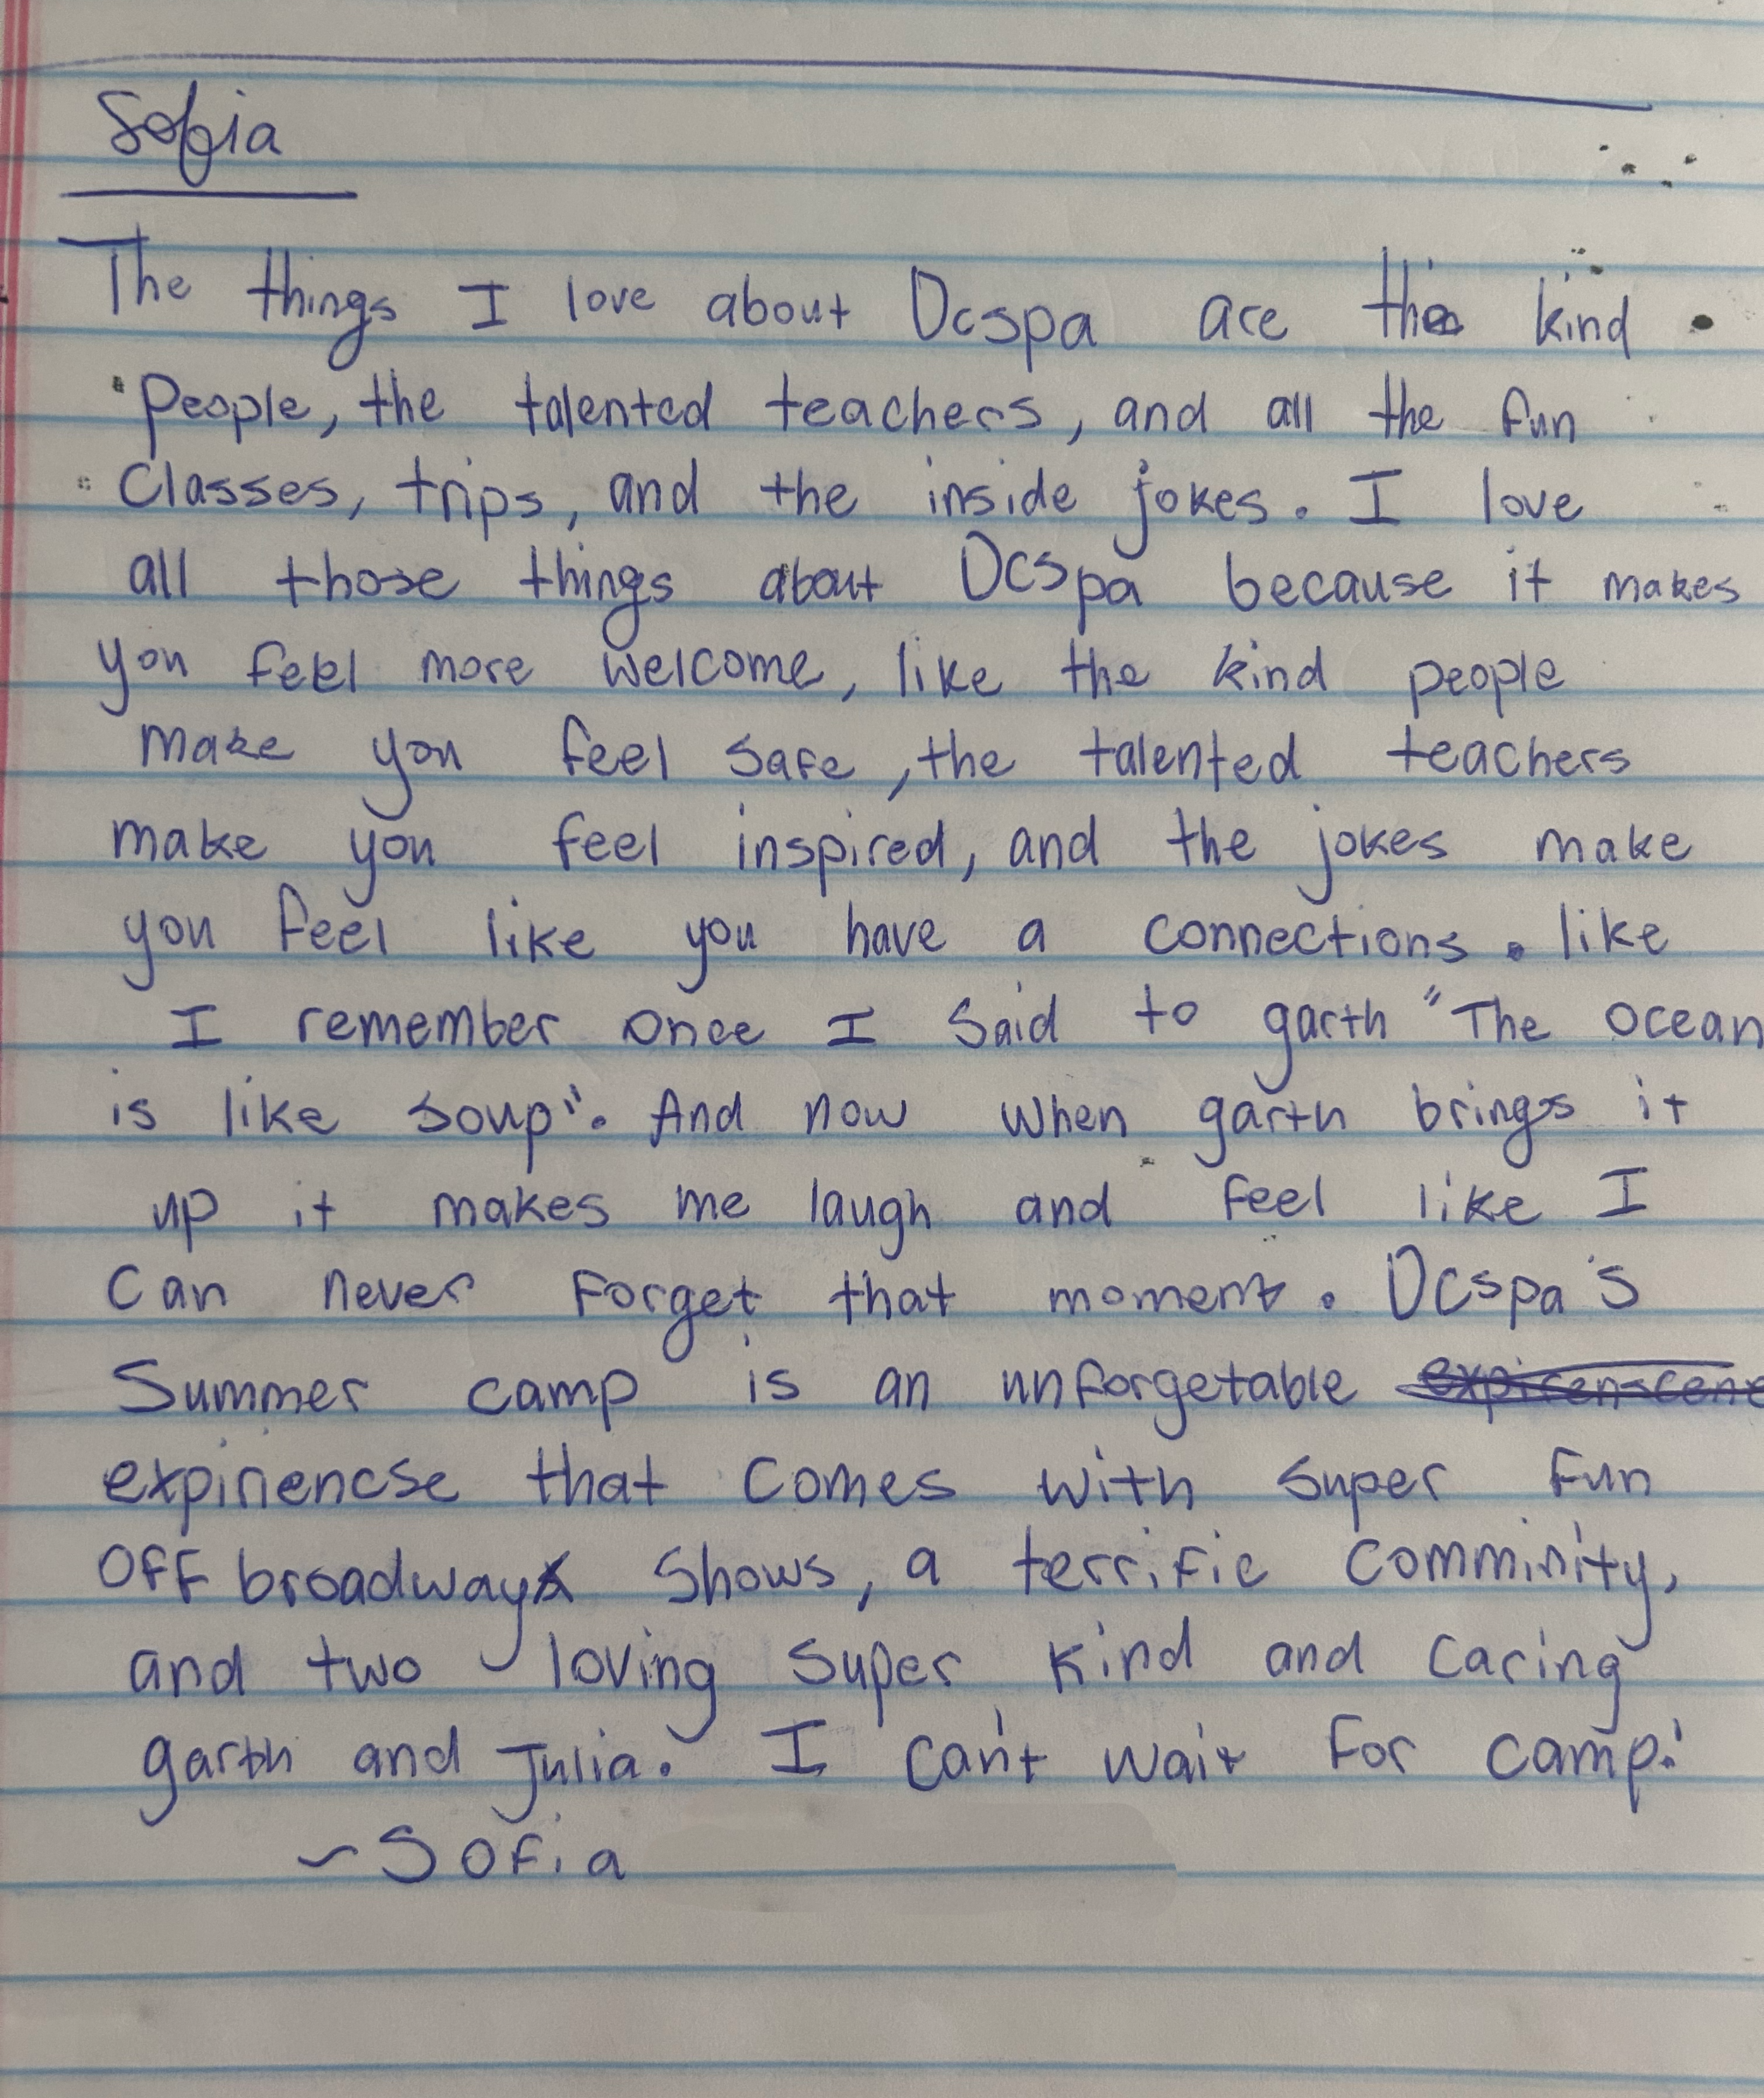 Sofia
The things I love about Dcspa are the kind
People, the talented teachers, and all the fun
Classes, trips, and the inside jokes. I love
all those things about Dcspa because it makes
you feel more welcome, like the kind people
make you feel safe, the talented teachers
make you feel inspired, and the jokes make
you feel like you have a connections. like
I remember once I said to garth "The ocean
is like soup". And now when garth brings it
up it makes me laugh and feel like I
can never forget that moment. Dcspa's
Summer camp is an unforgetable
expiriencse that comes with super fun
Off broadway shows, a terrific comminity,
and two loving super kind and caring
garth and Julia. I can't wait for camp!
~Sofia